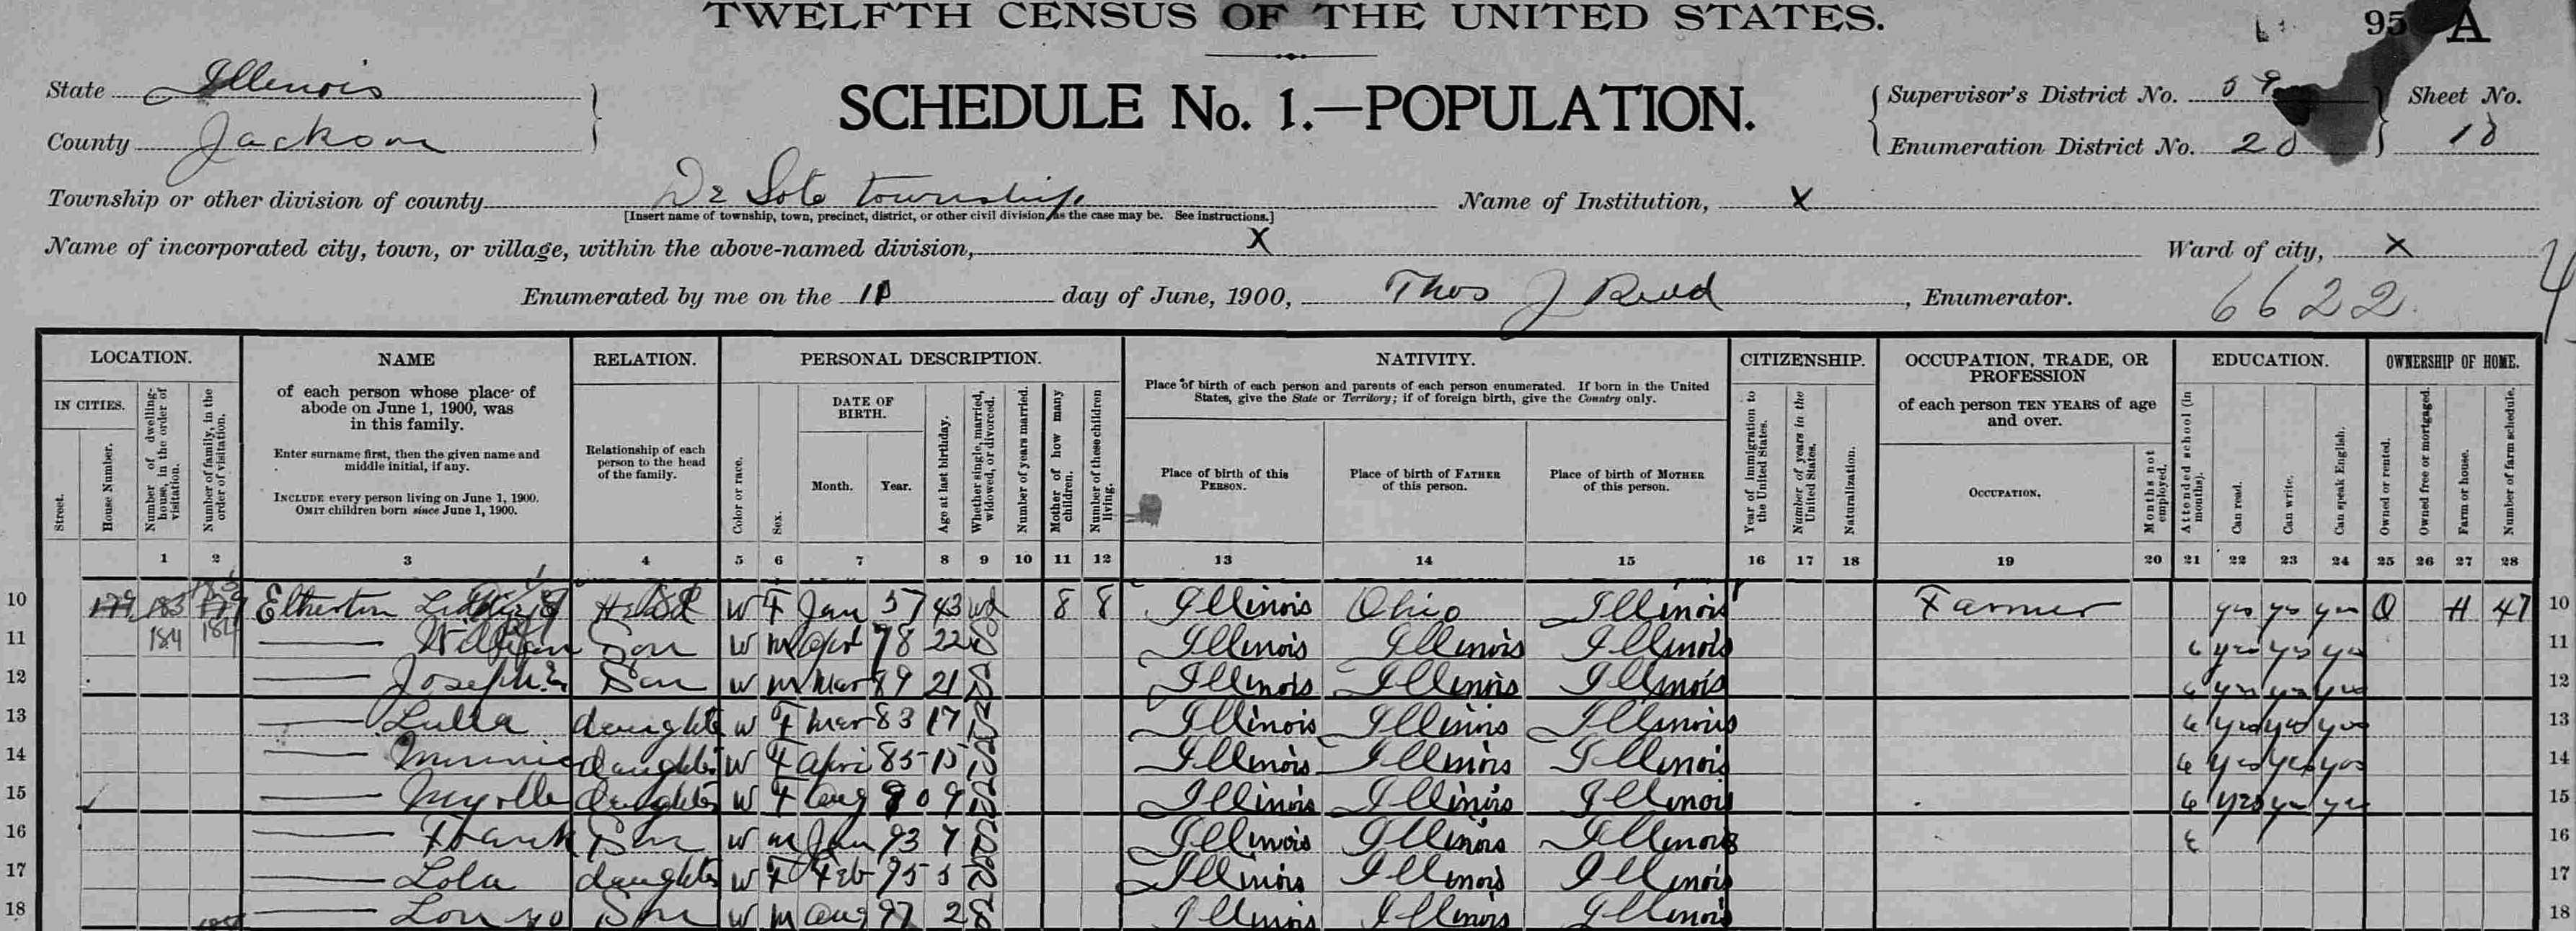 TWELFTH CENSUS OF THE UNITED STATES.
95 A
State Illinois
County Jackson
SCHEDULE No. 1.—POPULATION.
Supervisor's District No.
Enumeration District No.
Sheet No.
Township or other division of county De Soto township
[Insert name of township, town, precinct, district, or other civil division, as the case may be. See instructions.]
Name of Institution, X
Name of incorporated city, town, or village, within the above-named division, X
Ward of city, X
Enumerated by me on the day of June, 1900, Thos J , Enumerator.
6622
LOCATION. NAME RELATION. PERSONAL DESCRIPTION. NATIVITY. CITIZENSHIP. OCCUPATION, TRADE, OR PROFESSION EDUCATION. OWNERSHIP OF HOME.
IN CITIES.
Street.
House Number.
Number of dwelling-house, in the order of visitation.
Number of family, in the order of visitation.
of each person whose place of abode on June 1, 1900, was in this family.
Enter surname first, then the given name and middle initial, if any.
INCLUDE every person living on June 1, 1900.
OMIT children born since June 1, 1900.
Relationship of each person to the head of the family.
Color or race.
Sex.
DATE OF BIRTH.
Month. Year.
Age at last birthday.
Whether single, married, widowed, or divorced.
Number of years married.
Mother of how many children.
Number of these children living.
Place of birth of each person and parents of each person enumerated. If born in the United States, give the State or Territory; if of foreign birth, give the Country only.
Place of birth of this PERSON.
Place of birth of FATHER of this person.
Place of birth of MOTHER of this person.
Year of immigration to the United States.
Number of years in the United States.
Naturalization.
of each person TEN YEARS of age and over.
OCCUPATION.
Months not employed.
Attended school (in months).
Can read.
Can write.
Can speak English.
Owned or rented.
Owned free or mortgaged.
Farm or house.
Number of farm schedule.
1 2 3 4 5 6 7 8 9 10 11 12 13 14 15 16 17 18 19 20 21 22 23 24 25 26 27 28
10 179 183 179 Etherton Head W F Jan 57 43 wd 8 8 Illinois Ohio Illinois Farmer yes yes yes O H 47 10
11 184 184 William Son W m Apr 78 22 S Illinois Illinois Illinois 6 yes yes yes 11
12 Joseph E Son W m Mar 21 S Illinois Illinois Illinois 6 yes yes yes 12
13 Lulla daughter W F Mar 83 17 S Illinois Illinois Illinois 6 yes yes yes 13
14 Minnie daughter W F Apri 85 15 S Illinois Illinois Illinois 6 yes yes yes 14
15 Myrtle daughter W F Aug 90 9 S Illinois Illinois Illinois 6 yes yes yes 15
16 Frank Son W m Jan 93 7 S Illinois Illinois Illinois 16
17 Lola daughter W F Feb 95 5 S Illinois Illinois Illinois 17
18 Lonzo Son W m Aug 97 2 S Illinois Illinois Illinois 18